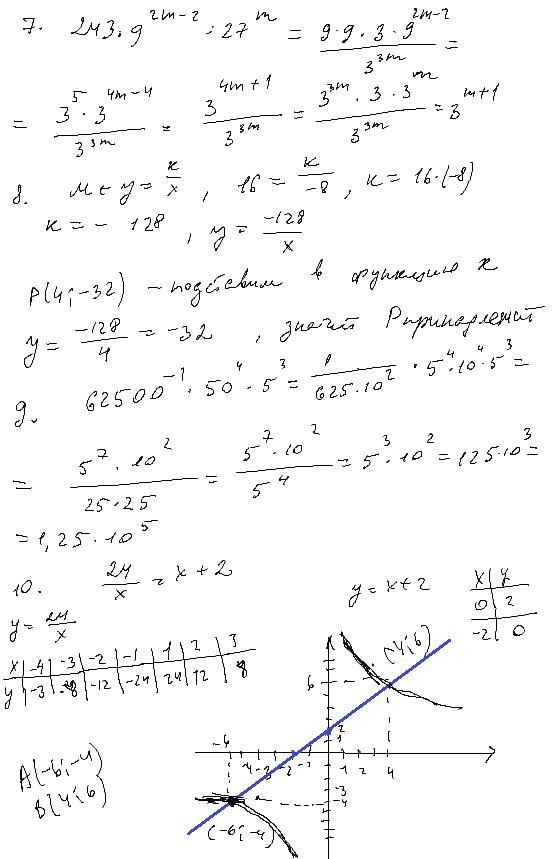 7. 243 · 9^(2m-2) : 27^m = (9 · 9 · 3 · 9^(2m-2)) / 3^(3m) =
= (3^5 · 3^(4m-4)) / 3^(3m) = 3^(4m+1) / 3^(3m) = (3^(3m) · 3 · 3^m) / 3^(3m) = 3^(m+1)
8. y = k/x , 16 = k/-8 , k = 16·(-8)
k = - 128 , y = -128/x
P(4;-32) - подставим в функцию x
y = -128/4 = -32 , значит P принадлежит
9. 62500^-1 · 50^4 · 5^3 = 1/(625·10^2) · 5^4 · 10^4 · 5^3 =
= (5^7 · 10^2) / (25 · 25) = (5^7 · 10^2) / 5^4 = 5^3 · 10^2 = 125·10^3 =
= 1,25 · 10^5
10. 24/x = x + 2
y = x + 2
x y
0 2
-2 0
y = 24/x
x -4 -3 -2 -1 1 2 3
y -3 -8 -12 -24 24 12 8
A(-6;-4)
B(4;6
(4;6)
6
2
1
-6 -4 -3 -2 -1 1 2 4
-3
-4
(-6;-4)